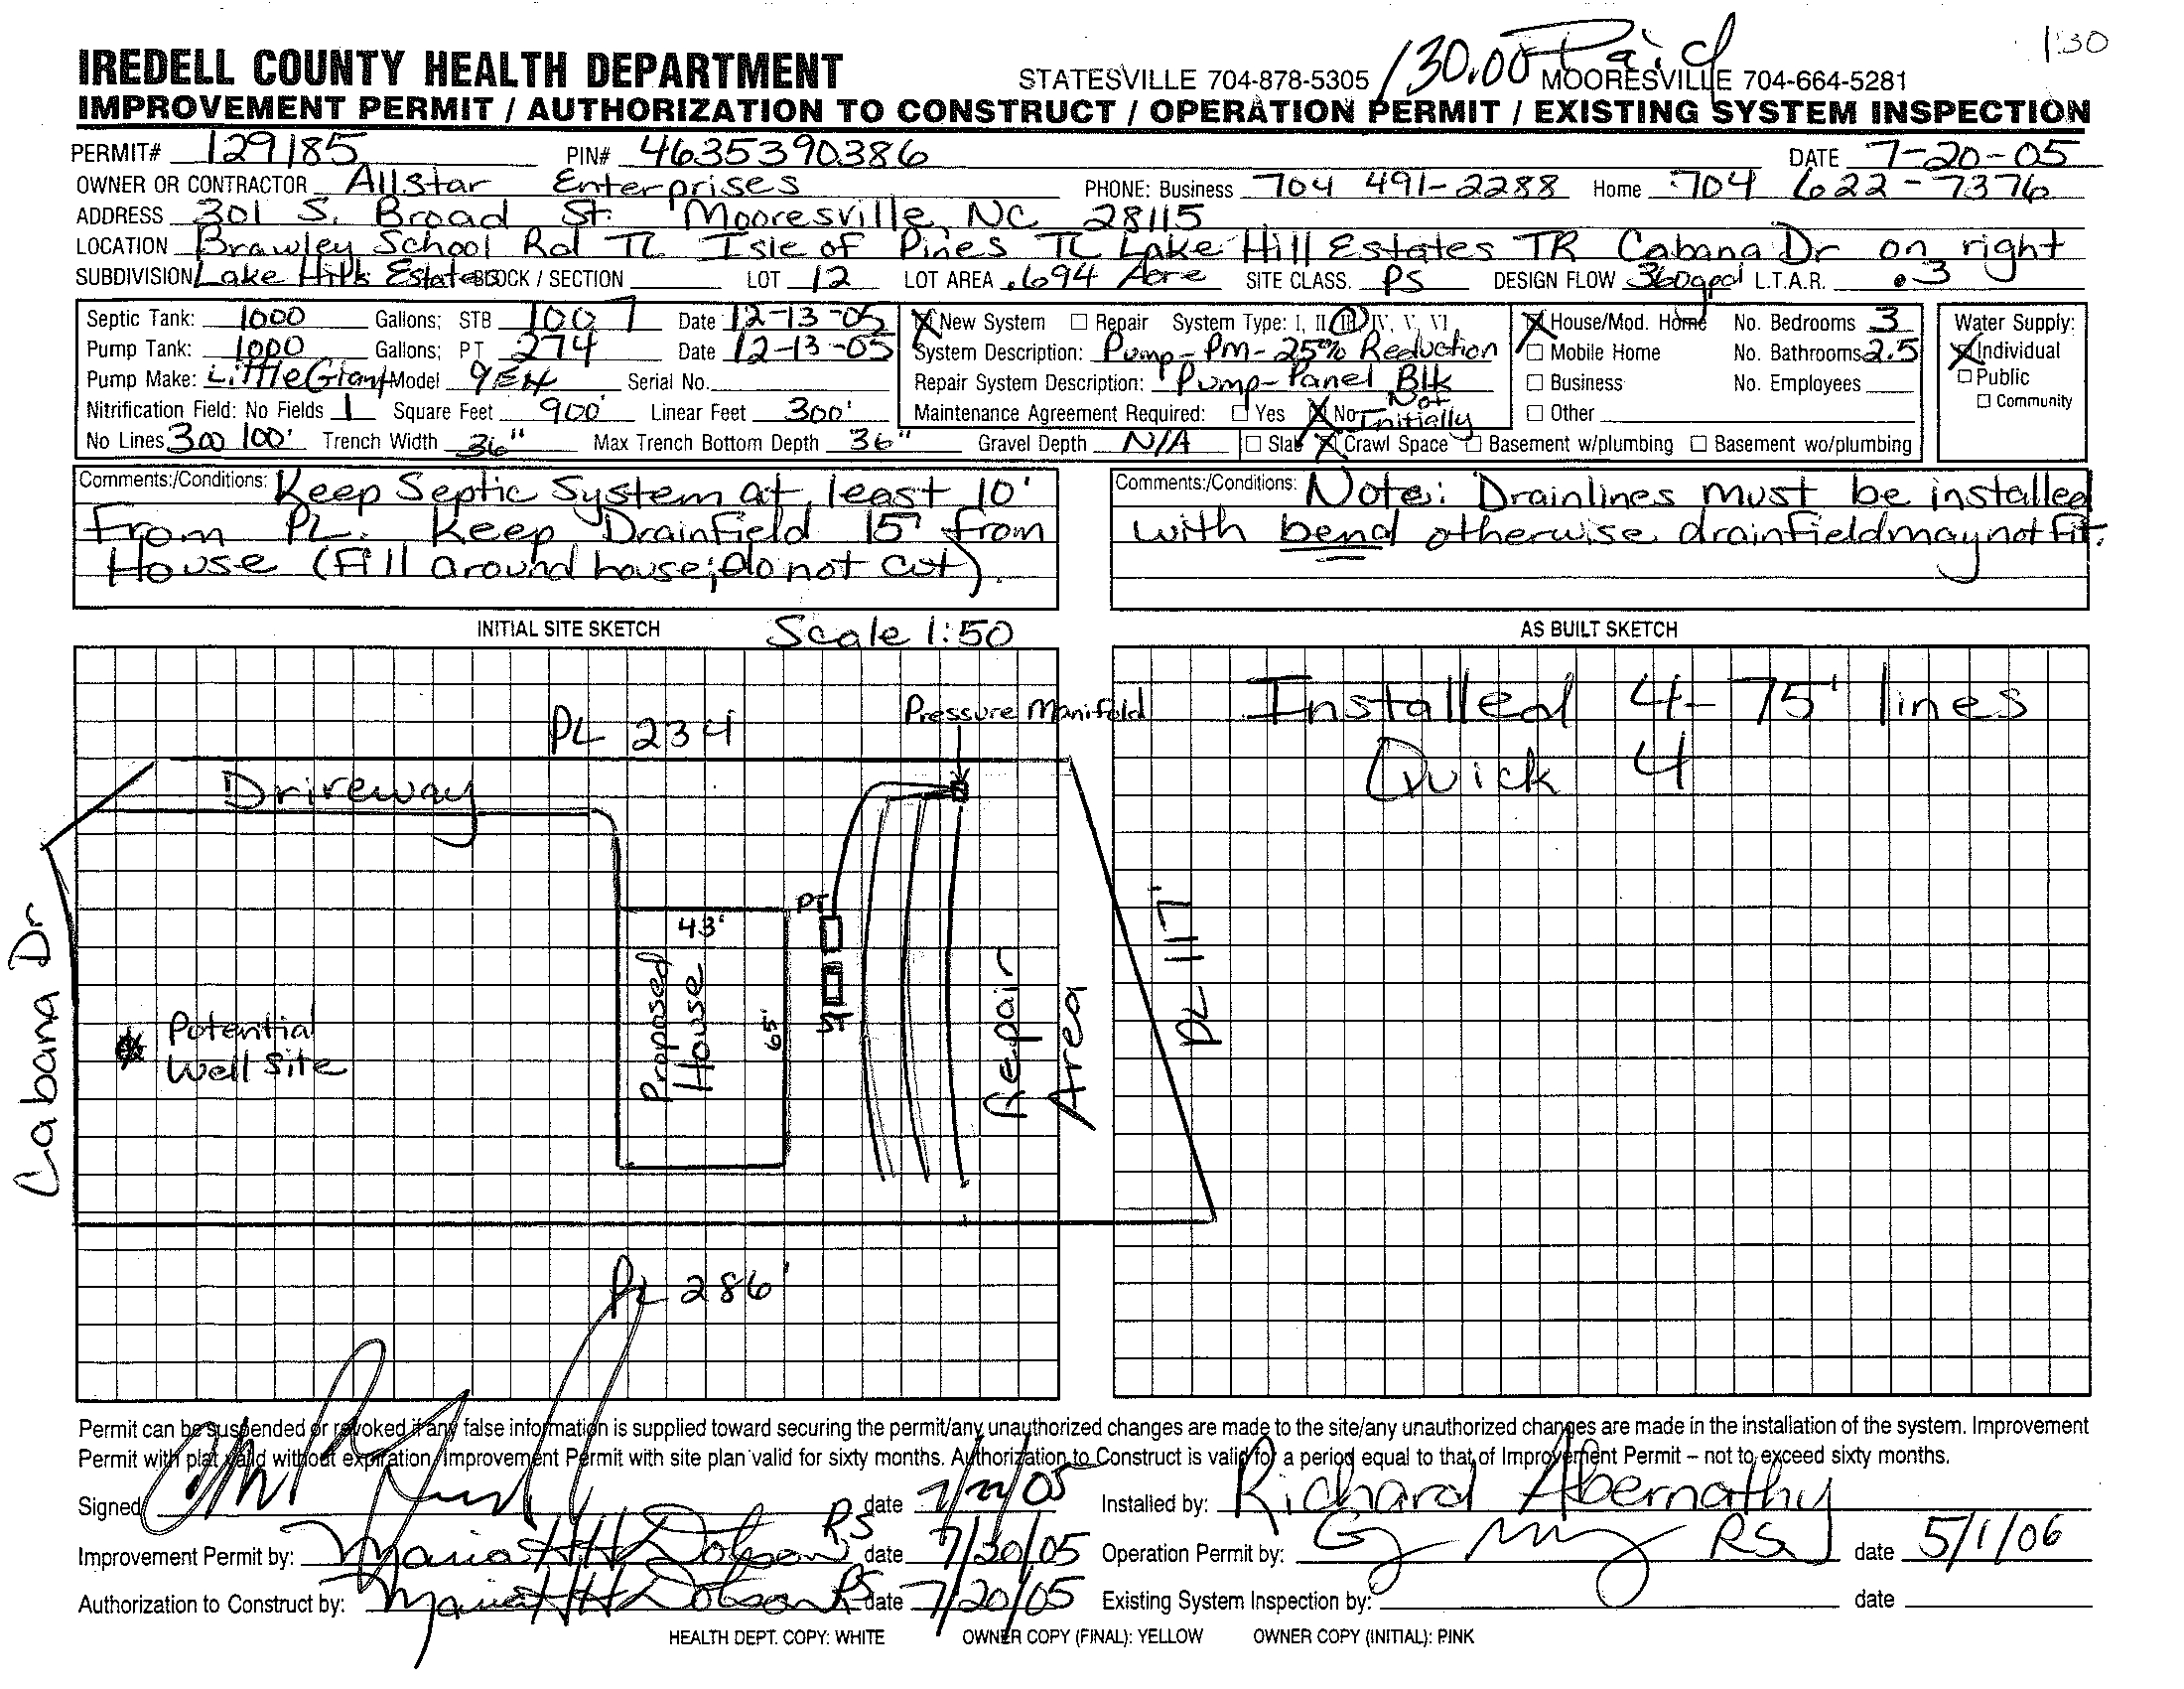 130.00 Paid
1:30
IREDELL COUNTY HEALTH DEPARTMENT STATESVILLE 704-878-5305 MOORESVILLE 704-664-5281
IMPROVEMENT PERMIT / AUTHORIZATION TO CONSTRUCT / OPERATION PERMIT / EXISTING SYSTEM INSPECTION
PERMIT# 129185 PIN# 4635390386 DATE 7-20-05
OWNER OR CONTRACTOR Allstar Enterprises PHONE: Business 704 491-2288 Home 704 622-7376
ADDRESS 301 S. Broad St. Mooresville, NC 28115
LOCATION Brawley School Rd TL Isle of Pines TL Lake Hill Estates TR Cabana Dr on right
SUBDIVISION Lake Hills Estates BLOCK / SECTION LOT 12 LOT AREA .694 Acre SITE CLASS. PS DESIGN FLOW 360gpd L.T.A.R. .3
Septic Tank: 1000 Gallons; STB 1007 Date 12-13-05
Pump Tank: 1000 Gallons; PT 274 Date 12-13-05
Pump Make: Little Giant Model 9EH Serial No.
Nitrification Field: No Fields 1 Square Feet 900' Linear Feet 300'
No Lines 3 @ 100' Trench Width 36" Max Trench Bottom Depth 36" Gravel Depth N/A
X New System Repair System Type: I, II, III, IV, V, VI
System Description: Pump-PM-25% Reduction
Repair System Description: Pump-Panel Blk
Maintenance Agreement Required: Yes X No Not Initially
X House/Mod. Home No. Bedrooms 3
Mobile Home No. Bathrooms 2.5
Business No. Employees
Other
Slab X Crawl Space Basement w/plumbing Basement wo/plumbing
Water Supply:
X Individual
Public
Community
Comments:/Conditions: Keep Septic System at least 10'
from PL. Keep Drainfield 15' from
House (fill around house; do not cut).
Comments:/Conditions: Note: Drainlines must be installed
with bend otherwise drainfield may not fit.
INITIAL SITE SKETCH Scale 1:50
PL 234
Pressure Manifold
Driveway
Cabana Dr
PT
43'
Proposed House
65'
ST
Potential
Well Site
Repair
Area
PL 117'
PL 286'
AS BUILT SKETCH
Installed 4-75' lines
Quick 4
Permit can be suspended or revoked if any false information is supplied toward securing the permit/any unauthorized changes are made to the site/any unauthorized changes are made in the installation of the system. Improvement
Permit with plat valid without expiration/Improvement Permit with site plan valid for sixty months. Authorization to Construct is valid for a period equal to that of Improvement Permit – not to exceed sixty months.
Signed date 7/22/05 Installed by: Richard Abernathy
Improvement Permit by: Maria H H Dobson RS date 7/20/05 Operation Permit by: RS date 5/1/06
Authorization to Construct by: Maria H H Dobson RS date 7/20/05 Existing System Inspection by: date
HEALTH DEPT. COPY: WHITE OWNER COPY (FINAL): YELLOW OWNER COPY (INITIAL): PINK